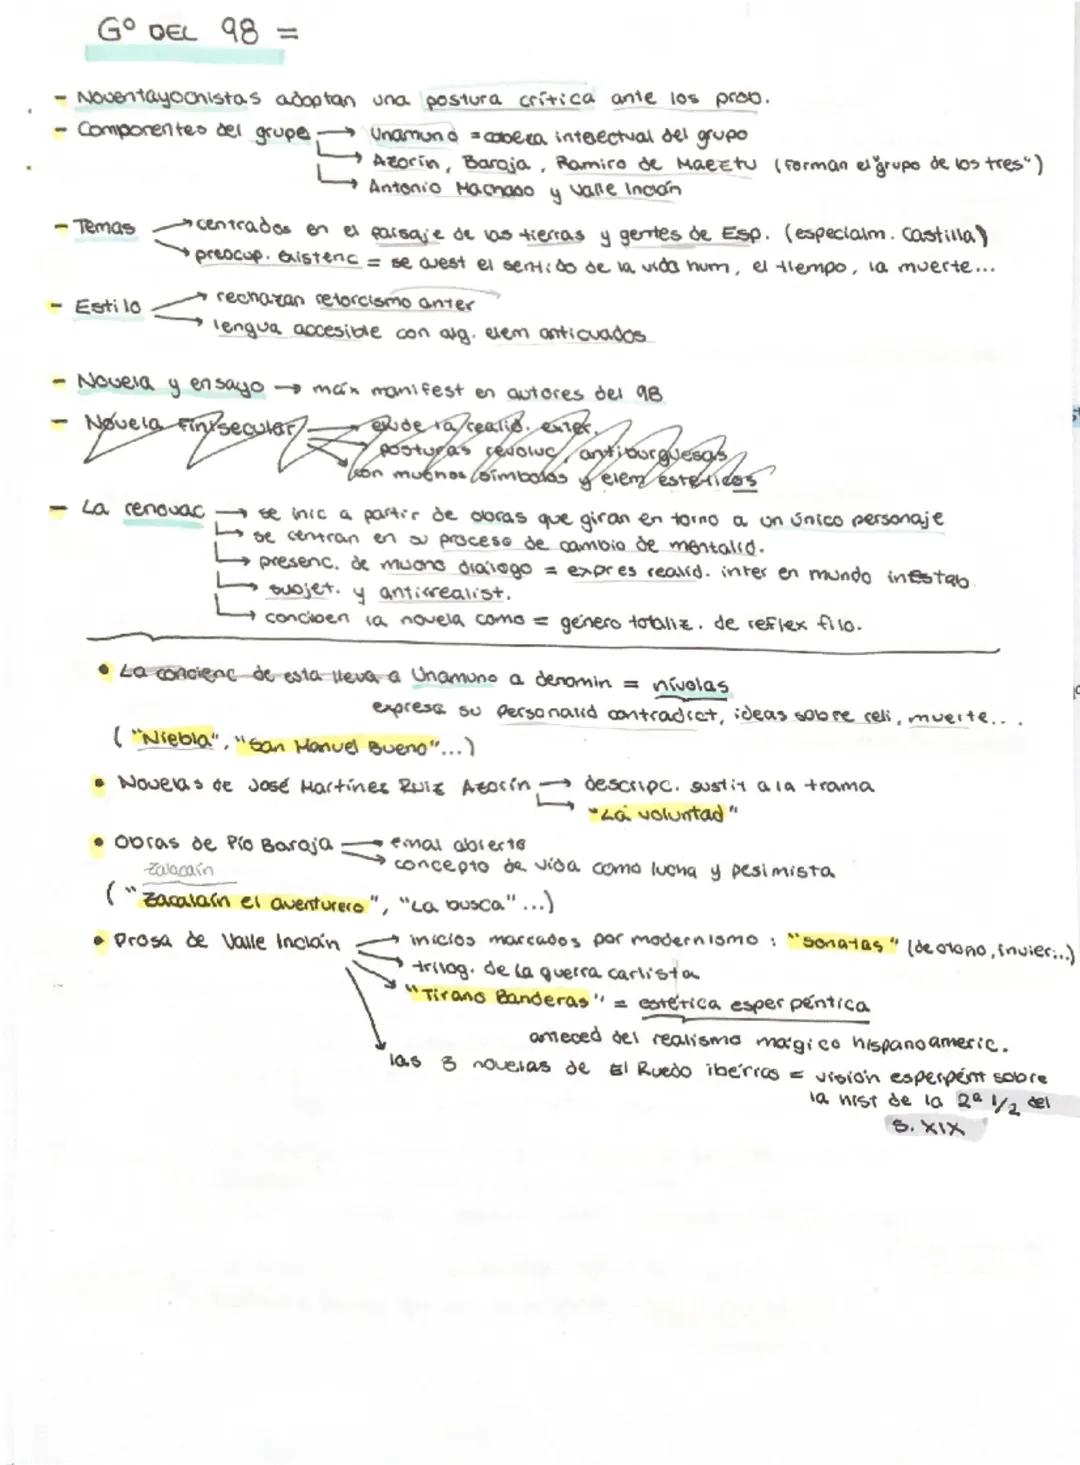 Gº DEL 98 =
- Noventayochistas adoptan una postura crítica ante los prob.
- Componentes del grupo → Unamuno = cabeza intelectual del grupo
→ Azorín, Baroja, Ramiro de Maeztu (forman el "grupo de los tres")
→ Antonio Machado y Valle Inclán
- Temas → centrados en el paisaje de las tierras y gentes de Esp. (especialm. Castilla)
→ preocup. existenc = se cuest el sentido de la vida hum, el tiempo, la muerte...
- Estilo → rechazan retorcismo anter
→ lengua accesible con alg. elem anticuados
- Novela y ensayo → máx manifest en autores del 98
- Novela finisecular → elude la realid. exter.
posturas revoluc, antiburguesas
→ con muchos símbolos y elem estéticos
- La renovac → se inic a partir de obras que giran en torno a un único personaje
→ se centran en su proceso de cambio de mentalid.
→ presenc. de mucho diálogo = expres realid. inter en mundo inestab
→ subjet. y antirrealist.
→ conciben la novela como = género totaliz. de reflex filo.
• La concienc de esta lleva a Unamuno a denomin = nívolas
expresa su personalid contradict, ideas sobre reli, muerte...
("Niebla", "San Manuel Bueno"...)
• Novelas de José Martínez Ruiz Azorín → descripc. sustit a la trama
→ "La voluntad"
• Obras de Pío Baroja → abierto
→ concepto de vida como lucha y pesimista
Zalacaín
("Zacalaín el aventurero", "La busca"...)
• Prosa de Valle Inclán → inicios marcados por modernismo: "Sonatas" (de otoño, invier...)
→ trilog. de la guerra carlista
→ "Tirano Banderas" = estética esperpéntica
anteced del realismo mágico hispanoameric.
las 3 novelas de El Ruedo ibérico = visión esperpént sobre
la hist de la 2ª 1/2 del
S. XIX